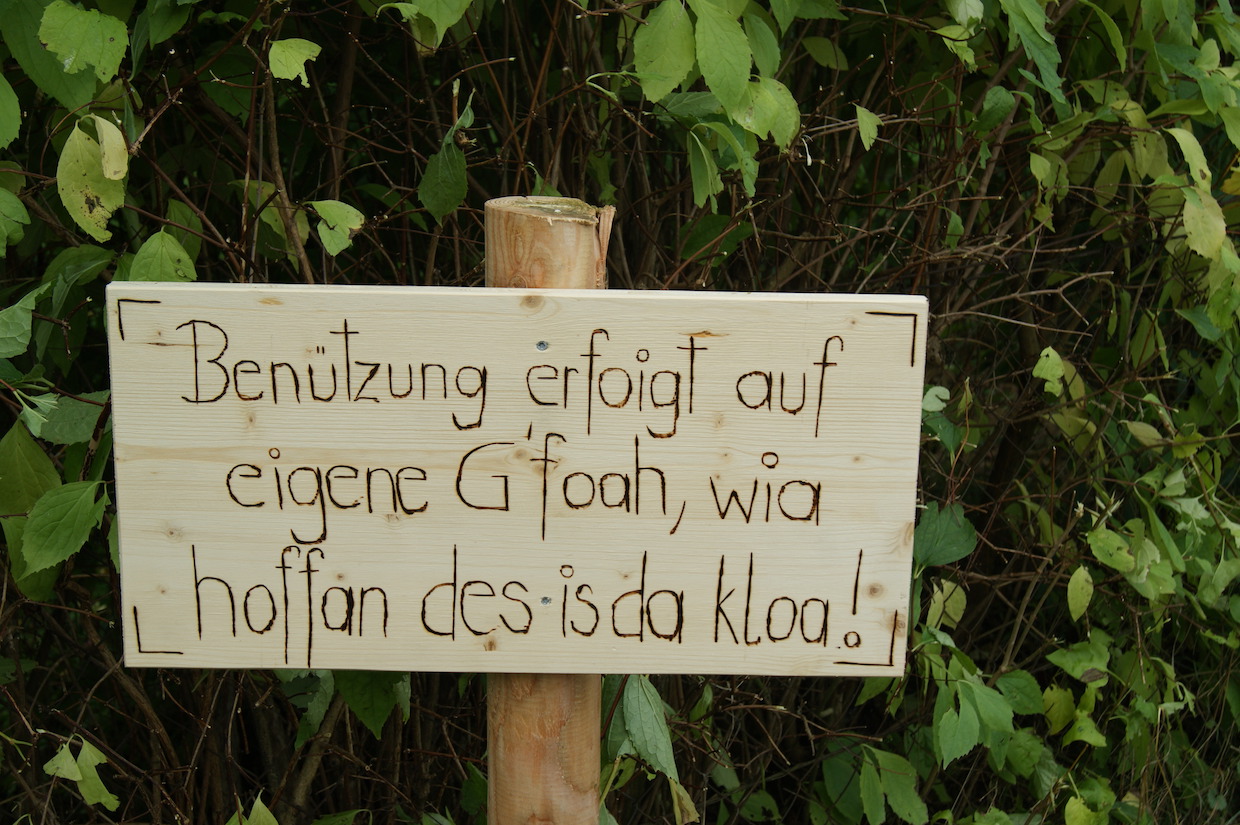 Benützung erfoigt auf
eigene G'foah, wia
hoffan des is da kloa!